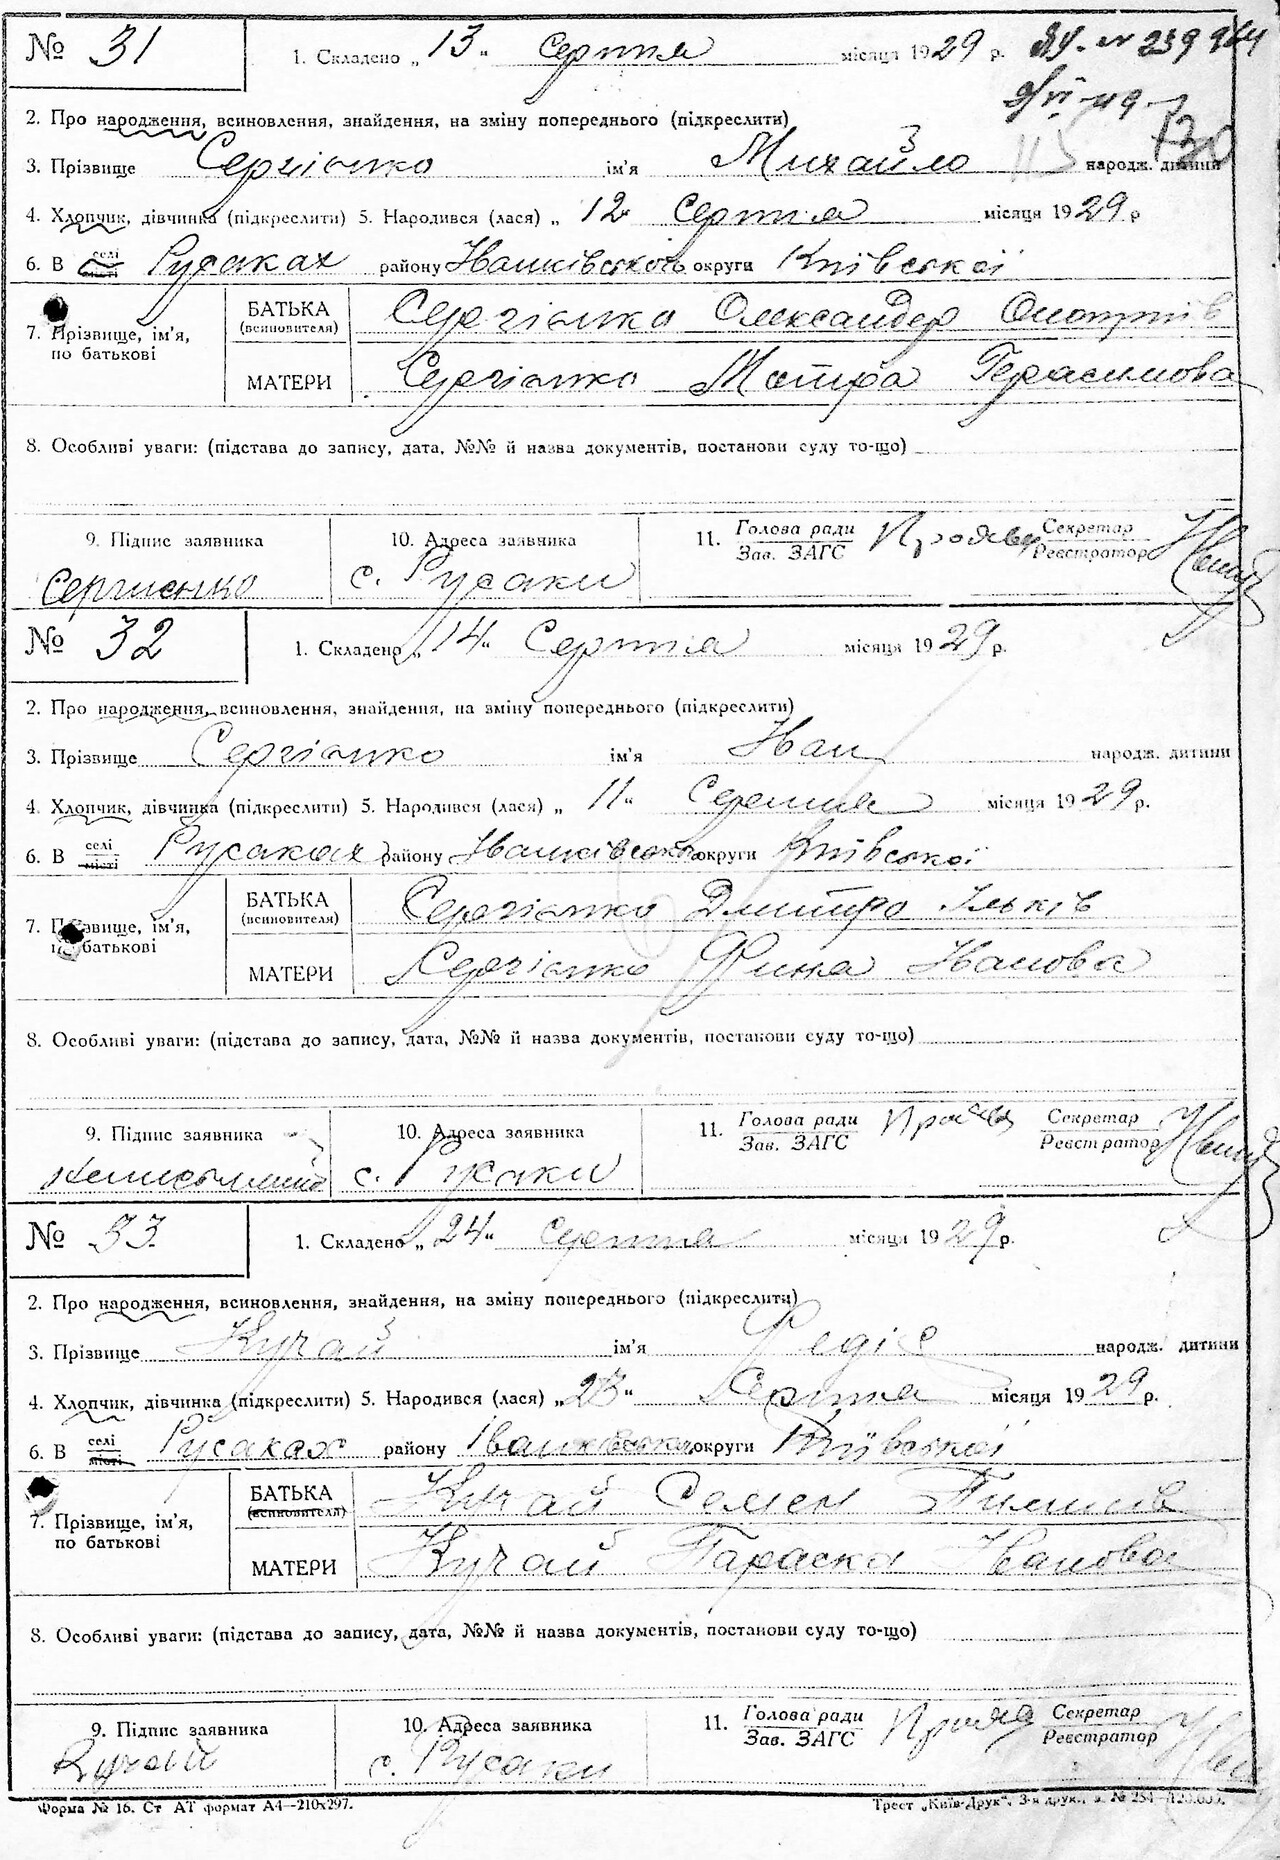 № 31 1. Складено „ 13 " Серпня місяця 1929 р. № 239
2. Про народження, всиновлення, знайдення, на зміну попереднього (підкреслити)
3. Прізвище Сергієнко ім'я Михайло 115 730 народж. дитини
4. Хлопчик, дівчинка (підкреслити) 5. Народився (лася) „ 12 Серпня місяця 1929 р
6. В селі місті Русаках району Іванківського округи Київської
7. Прізвище, ім'я, по батькові
БАТЬКА (всиновителя) Сергієнко Олександер
МАТЕРИ Сергієнко Мотра Герасимова
8. Особливі уваги: (підстава до запису, дата, №№ й назва документів, постанови суду то-що)
9. Підпис заявника 10. Адреса заявника 11. Голова ради Зав. ЗАГС Секретар Реєстратор
Сергиенко с. Русаки
№ 32 1. Складено „ 14 " Серпня місяця 1929 р.
2. Про народження, всиновлення, знайдення, на зміну попереднього (підкреслити)
3. Прізвище Сергієнко ім'я Іван народж. дитини
4. Хлопчик, дівчинка (підкреслити) 5. Народився (лася) „ 11 " Серпня місяця 1929 р.
6. В селі місті Русаках району Іванківського округи Київської
7. Прізвище, ім'я, по батькові
БАТЬКА (всиновителя) Сергієнко Дмитро Ільків
МАТЕРИ Сергієнко Фина Іванова
8. Особливі уваги: (підстава до запису, дата, №№ й назва документів, постанови суду то-що)
9. Підпис заявника 10. Адреса заявника 11. Голова ради Зав. ЗАГС Секретар Реєстратор
с. Русаки
№ 33 1. Складено „ 24 " Серпня місяця 1929 р.
2. Про народження, всиновлення, знайдення, на зміну попереднього (підкреслити)
3. Прізвище Кучай ім'я Федіс народж. дитини
4. Хлопчик, дівчинка (підкреслити) 5. Народився (лася) „ 23 " Серпня місяця 1929 р.
6. В селі місті Русаках району Іванківськ. округи Київської
7. Прізвище, ім'я, по батькові
БАТЬКА (всиновителя) Кучай Семен
МАТЕРИ Кучай Параска Іванова
8. Особливі уваги: (підстава до запису, дата, №№ й назва документів, постанови суду то-що)
9. Підпис заявника 10. Адреса заявника 11. Голова ради Зав. ЗАГС Секретар Реєстратор
Кучай с. Русаки
Форма № 16. Ст АТ формат А4—210х297. Трест „Київ-Друк", 3-я друк., з. № 254—120.000.